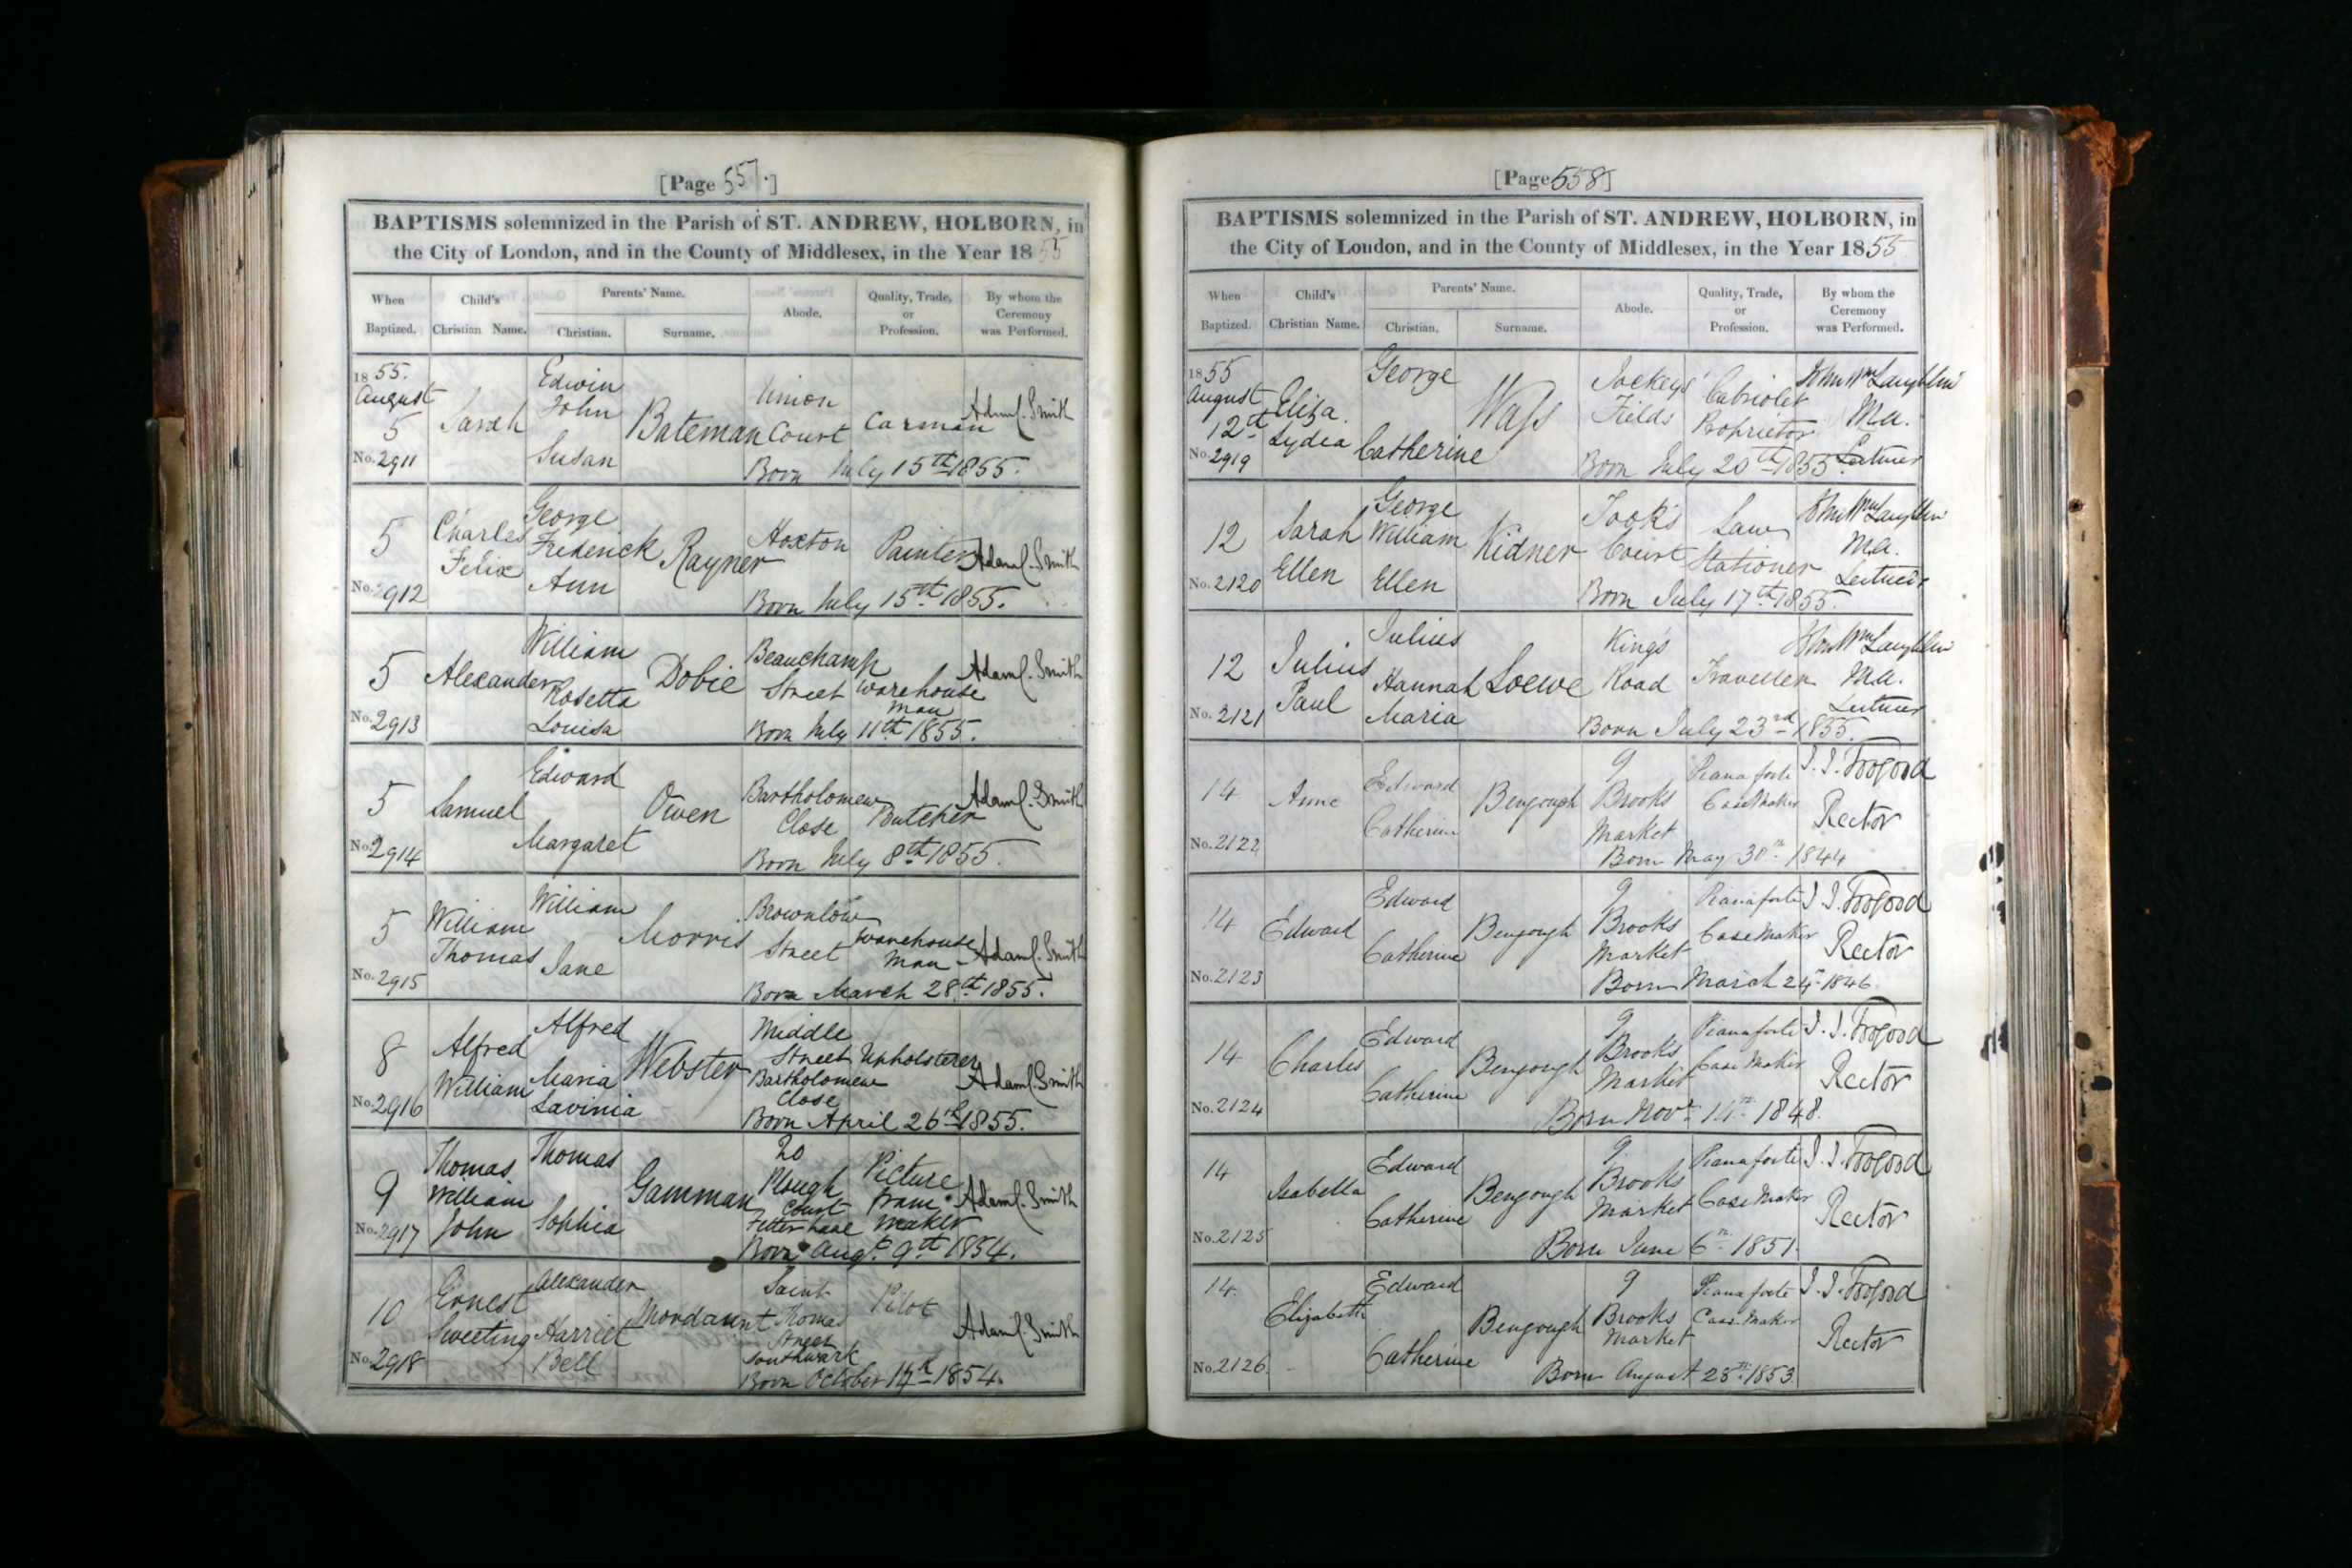 [Page 557.]
BAPTISMS solemnized in the Parish of ST. ANDREW, HOLBORN, in
the City of London, and in the County of Middlesex, in the Year 1855
When Baptized. Child's Christian Name. Parents' Name. Christian. Surname. Abode. Quality, Trade, or Profession. By whom the Ceremony was Performed.
1855. August 5 Sarah Edwin John Susan Bateman Union Court Carman Adam C. Smith
No. 2911 Born July 15th 1855.
5 Charles Felix George Frederick Ann Rayner Hoxton Painter Adam C. Smith
No. 2912 Born July 15th 1855.
5 Alexander William Rosetta Louisa Dobie Beauchamp Street Warehouse man Adam C. Smith
No. 2913 Born July 11th 1855.
5 Samuel Edward Margaret Owen Bartholomew Close Butcher Adam C. Smith
No. 2914 Born July 8th 1855.
5 William Thomas William Jane Morris Brownlow Street Warehouse man Adam C. Smith
No. 2915 Born March 28th 1855.
8 Alfred William Alfred Maria Lavinia Webster Middle Street Bartholomew Close Upholsterer Adam C. Smith
No. 2916 Born April 26th 1855.
9 Thomas William John Thomas Sophia Gamman 20 Plough Court Fetter Lane Picture Frame Maker Adam C. Smith
No. 2917 Born Augt 9th 1854.
10 Ernest Sweeting Alexander Harriet Bell Mordaunt Saint Thomas Street Southwark Pilot Adam C. Smith
No. 2918 Born October 14th 1854.
[Page 558]
BAPTISMS solemnized in the Parish of ST. ANDREW, HOLBORN, in
the City of London, and in the County of Middlesex, in the Year 1855
When Baptized. Child's Christian Name. Parents' Name. Christian. Surname. Abode. Quality, Trade, or Profession. By whom the Ceremony was Performed.
1855 August 12th Eliza Lydia George Catherine Wass Jockeys' Fields Cabriolet Proprietor John McLaughlin M.A. Lecturer
No. 2919 Born July 20th 1855.
12 Sarah Ellen George William Ellen Kidner Took's Court Law Stationer John McLaughlin M.A. Lecturer
No. 2120 Born July 17th 1855.
12 Julius Paul Julius Hannah Maria Loewe King's Road Traveller John McLaughlin M.A. Lecturer
No. 2121 Born July 23rd 1855.
14 Anne Edward Catherine Bengough 9 Brooks Market Pianoforte Case Maker J. J. Toogood Rector
No. 2122 Born May 30th 1844
14 Edward Edward Catherine Bengough 9 Brooks Market Pianoforte Case Maker J. J. Toogood Rector
No. 2123 Born March 24th 1846.
14 Charles Edward Catherine Bengough 9 Brooks Market Pianoforte Case Maker J. J. Toogood Rector
No. 2124 Born Novr 14th 1848.
14 Isabella Edward Catherine Bengough 9 Brooks Market Pianoforte Case Maker J. J. Toogood Rector
No. 2125 Born June 6th 1851.
14 Elizabeth Edward Catherine Bengough 9 Brooks Market Pianoforte Case Maker J. J. Toogood Rector
No. 2126 Born August 25th 1853.